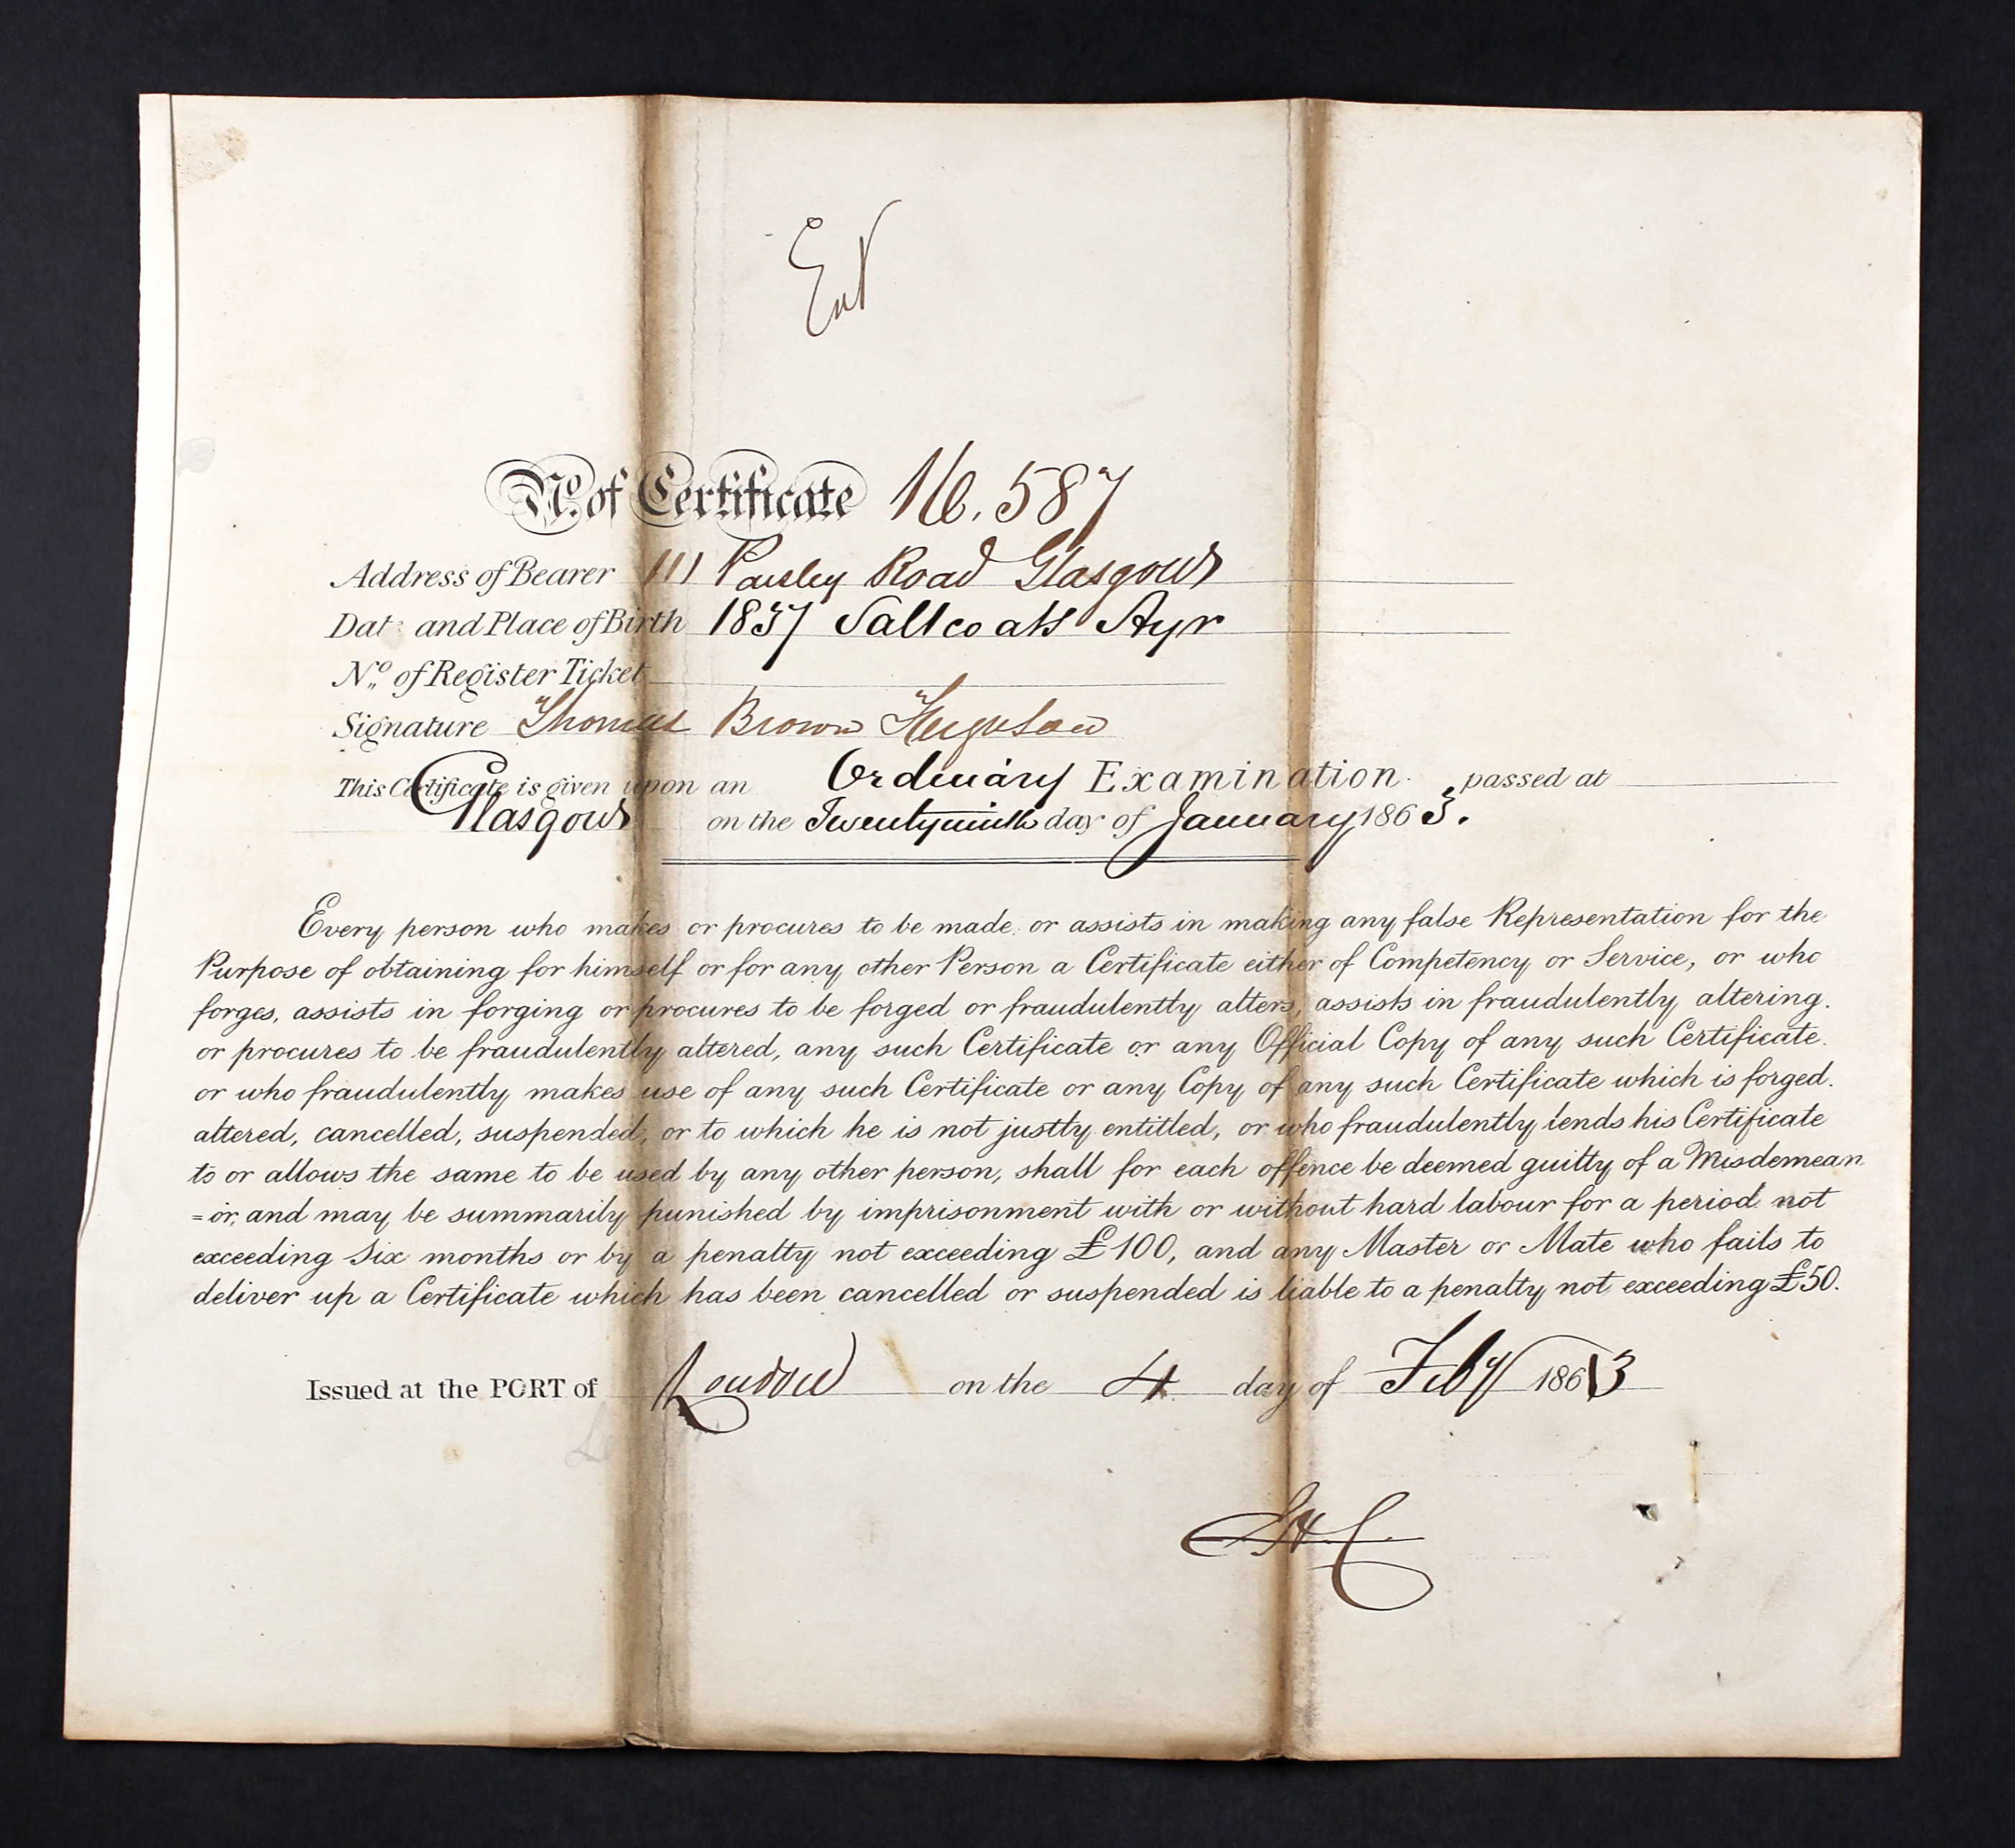 Ent
No. of Certificate 16.587
Address of Bearer 111 Paisley Road Glasgow
Date and Place of Birth 1837 Saltcoats Ayr
No. of Register Ticket
Signature Thomas Brown Ferguson
This Certificate is given upon an Ordinary Examination passed at
Glasgow on the Twentyninth day of January 1863.
Every person who makes or procures to be made or assists in making any false Representation for the
Purpose of obtaining for himself or for any other Person a Certificate either of Competency or Service, or who
forges, assists in forging or procures to be forged or fraudulently alters, assists in fraudulently altering.
or procures to be fraudulently altered, any such Certificate or any Official Copy of any such Certificate.
or who fraudulently makes use of any such Certificate or any Copy of any such Certificate which is forged.
altered, cancelled, suspended, or to which he is not justly entitled, or who fraudulently lends his Certificate
to or allows the same to be used by any other person, shall for each offence be deemed guilty of a Misdemean
=or, and may be summarily punished by imprisonment with or without hard labour for a period not
exceeding Six months or by a penalty not exceeding £100, and any Master or Mate who fails to
deliver up a Certificate which has been cancelled or suspended is liable to a penalty not exceeding £50.
Issued at the PORT of London on the 4 day of Feby 1863